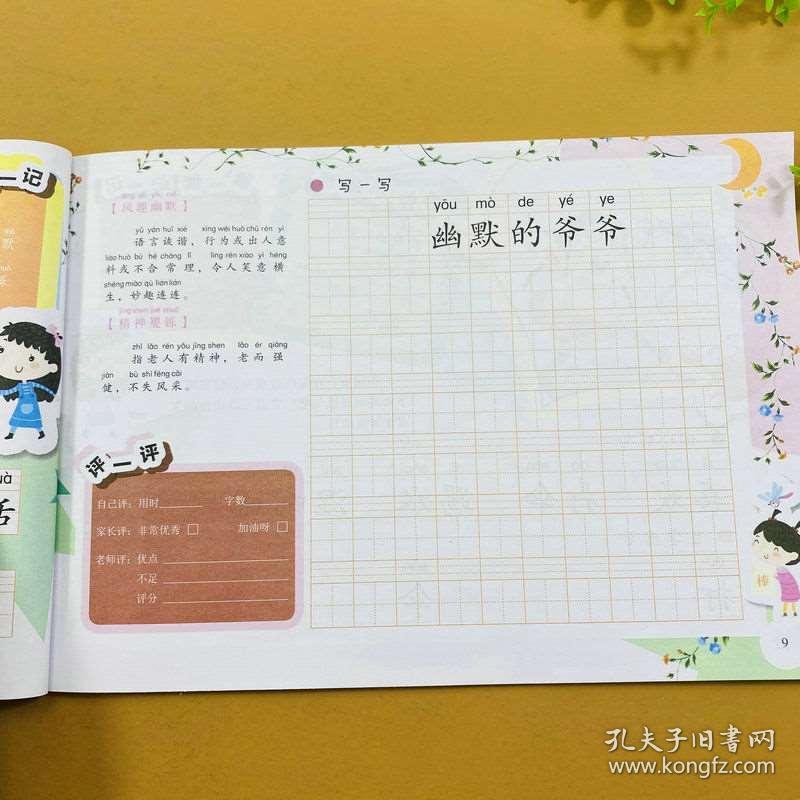 一记
默
uà
舌
【风趣幽默】
yǔ yán huī xié xíng wéi huò chū rén yì
语言诙谐，行为或出人意
liào huò bù hé cháng lǐ lìng rén xiào yì héng
料或不合常理，令人笑意横
shēng miào qù lián lián
生，妙趣连连。
jīng shén jué shuò
【精神矍铄】
zhǐ lǎo rén yǒu jīng shen lǎo ér qiáng
指老人有精神，老而强
jiàn bù shī fēng cǎi
健，不失风采。
评一评
自己评：用时 字数
家长评：非常优秀 加油呀
老师评：优点
不足
评分
写一写
yōu mò de yé ye
幽默的爷爷
棒
9
孔夫子旧书网
www.kongfz.com